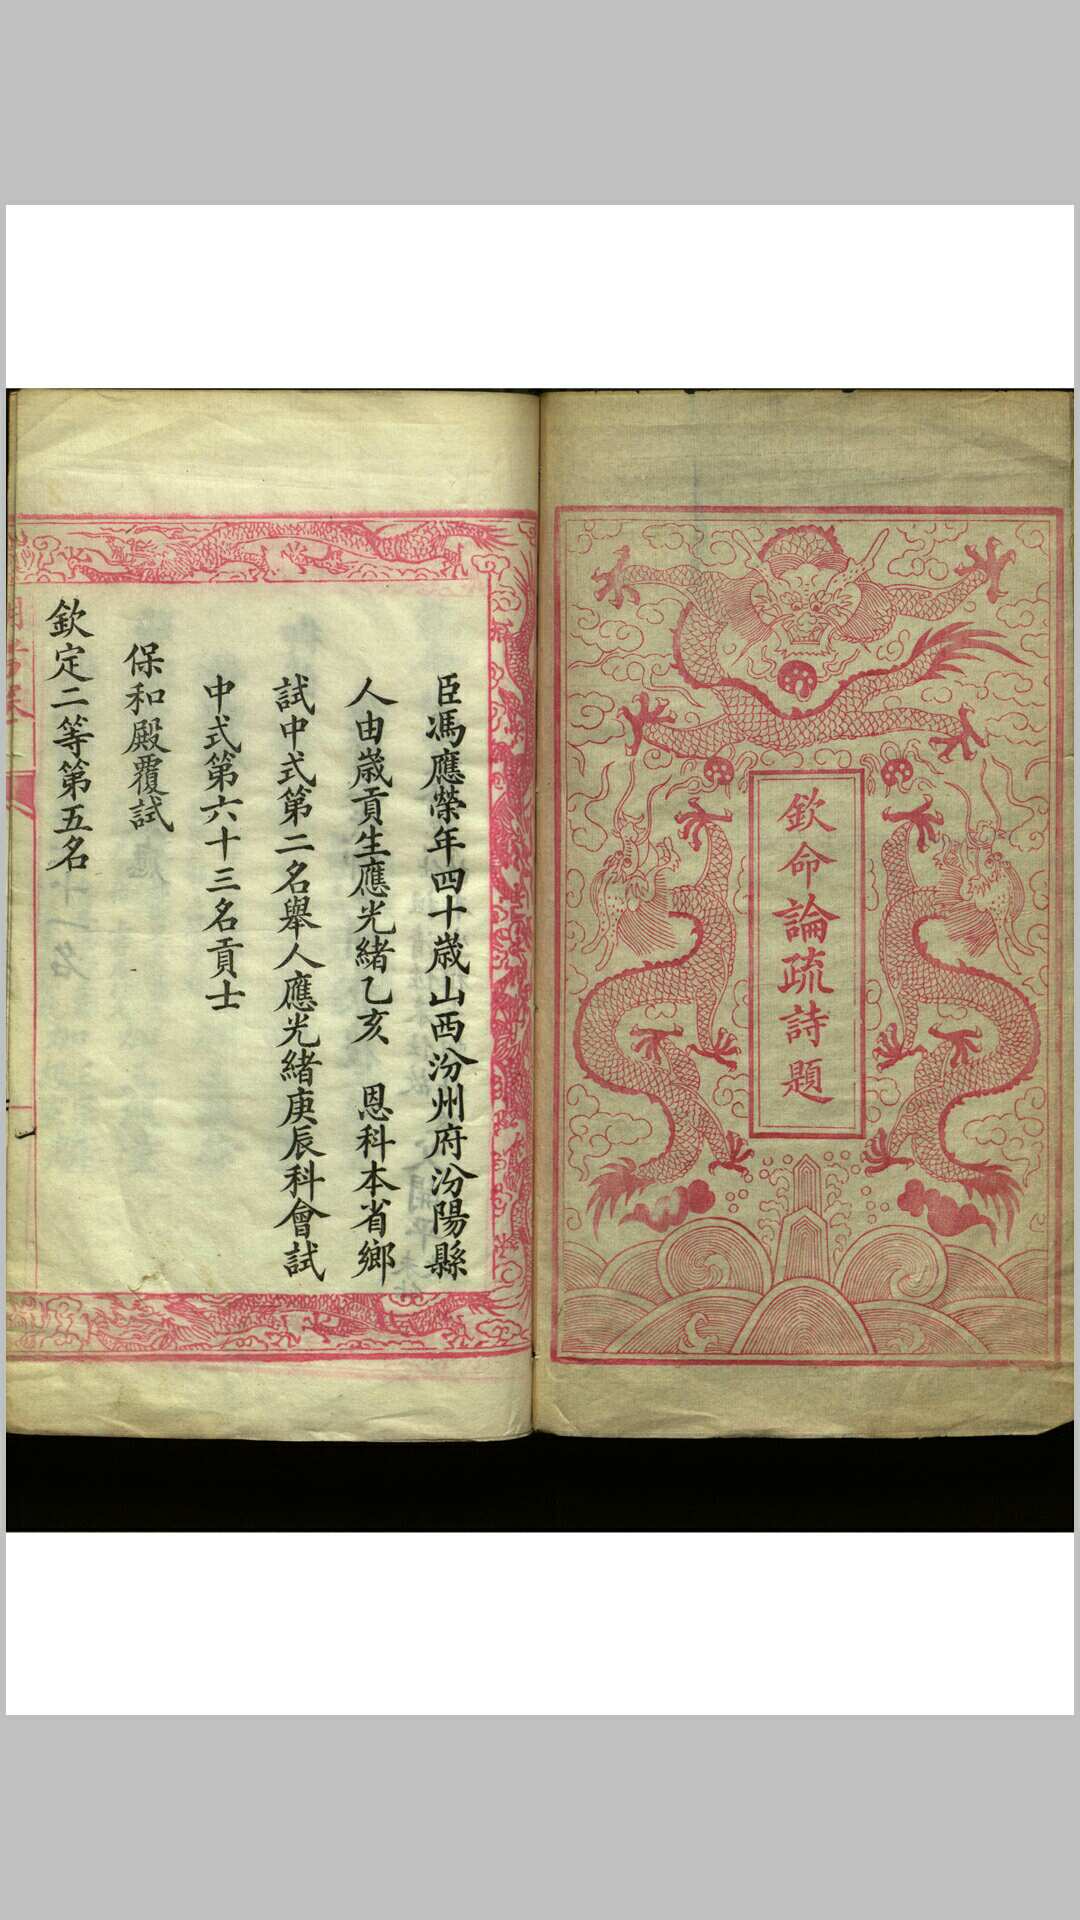 欽命論疏詩題
臣馮應榮年四十歲山西汾州府汾陽縣
人由歲貢生應光緒乙亥 恩科本省鄉
試中式第二名舉人應光緒庚辰科會試
中式第六十三名貢士
保和殿覆試
欽定二等第五名